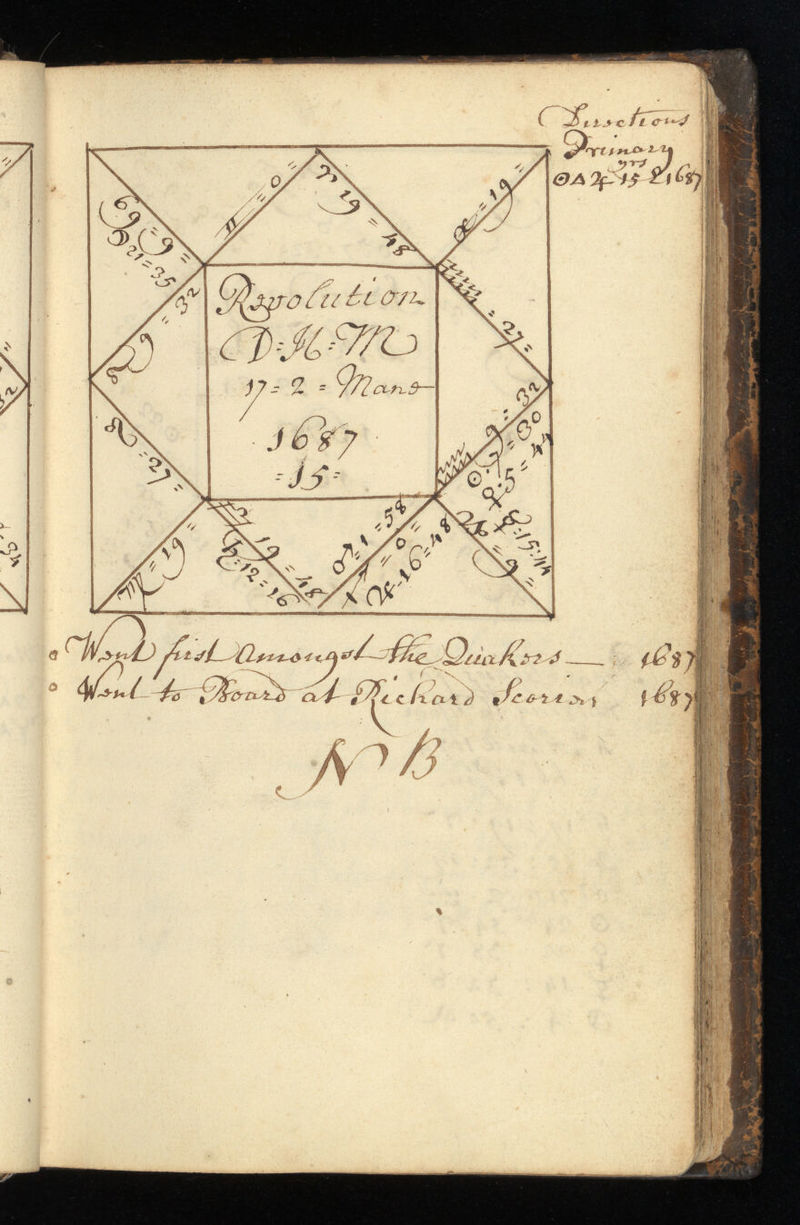 Directions
Primary
yrs
☉△♃ 15 & 1687
♊ = 0 =
♈ 19 = 48
♒ = 27 =
9 = 32
☉ : 7 = 30
♀ : 5 = 44
☿ : 15 : 44
♑ = 9 =
♂ = 1 = 58
♐ = 0 =
♃ - 16 = 48
♎ 19 = 48
♄ : 12 = 16
♍ = 19 =
♌ = 27 =
9 = 32
69 = 9 =
☽ 21 = 35
= 19 =
Revolution
D = H = M
17 = 2 = Mane
1687
= 15 =
Went first Amongst the Quakers — 1687
Went to Board at Richard Scorier 1687
N B